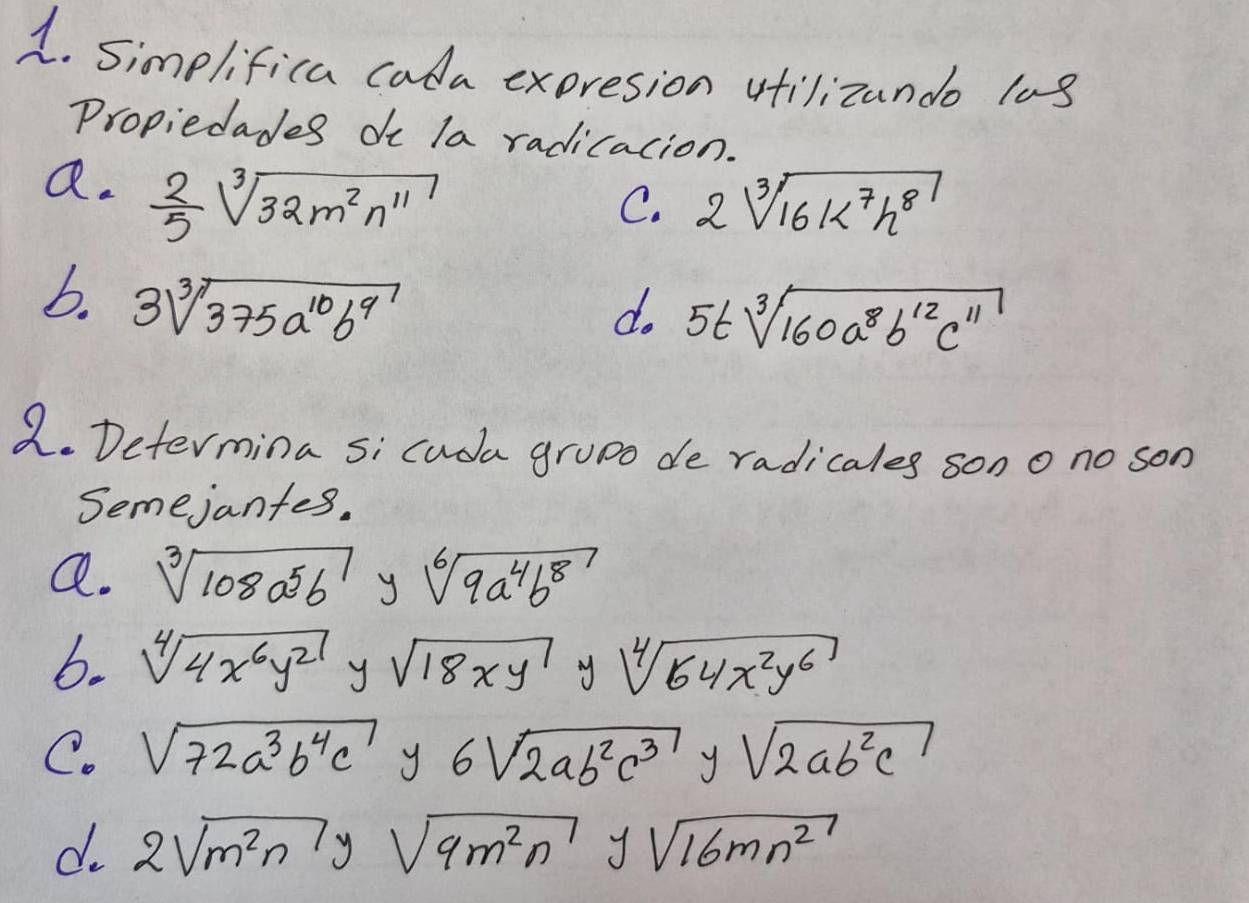 1. Simplifica cada expresion utilizando las
Propiedades de la radicacion.
a. 2/5 ∛(32m²n¹¹) c. 2 ∛(16k⁷h⁸)
b. 3∛(375a¹⁰b⁹) d. 5t ∛(160a⁸b¹²c¹¹)
2. Determina si cada grupo de radicales son o no son
Semejantes.
a. ∛(108a⁵b) y ⁶√(9a⁴b⁸)
b. ∜(4x⁶y²) y √(18xy) y ∜(64x²y⁶)
c. √(72a³b⁴c) y 6√(2ab²c³) y √(2ab²c)
d. 2√(m²n) y √(9m²n) y √(16mn²)